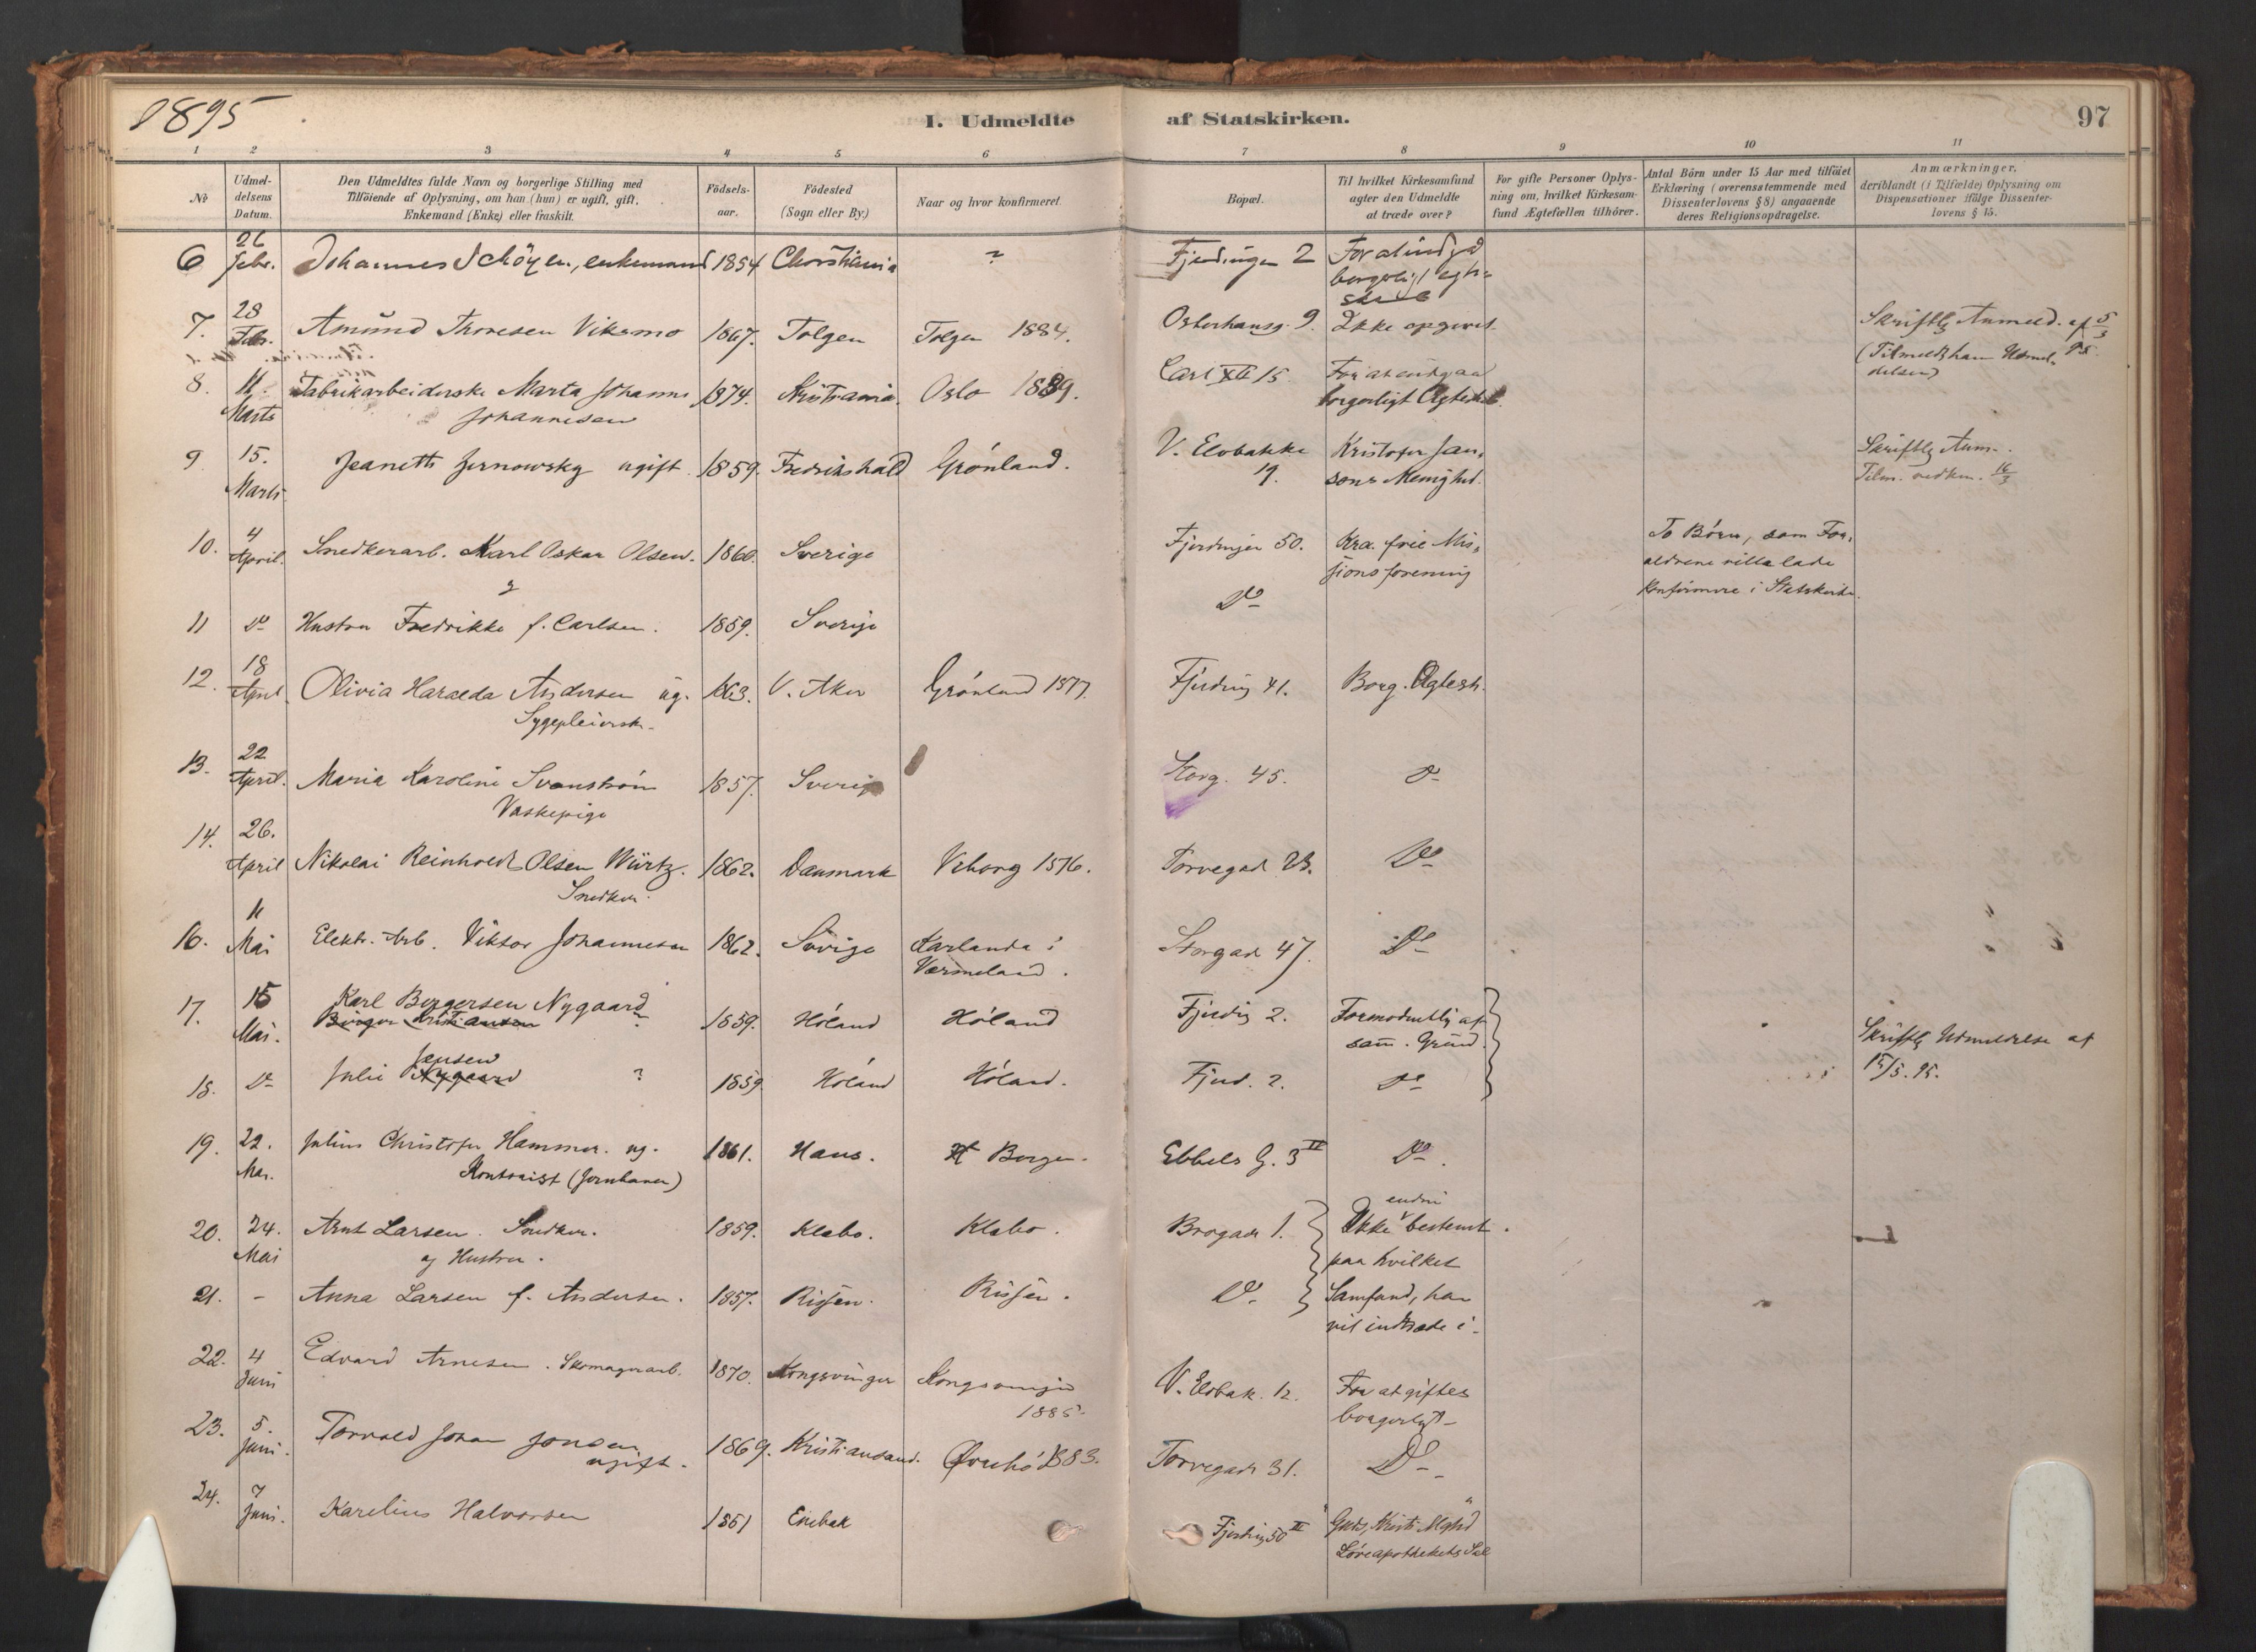 1895
I. Udmeldte af Statskirken.
97
1 2 3 4 5 6 7 8 9 10 11
No
Udmel-
delsens
Datum.
Den Udmeldtes fulde Navn og borgerlige Stilling med
Tilföiende af Oplysning, om han (hun) er ugift, gift,
Enkemand (Enke) eller fraskilt.
Födsels-
aar.
Födested
(Sogn eller By.)
Naar og hvor konfirmeret.
Bopæl.
Til hvilket Kirkesamfund
agter den Udmeldte
at træde over?
For gifte Personer Oplys-
ning om, hvilket Kirkesam-
fund Ægtefællen tilhörer.
Antal Börn under 15 Aar med tilföiet
Erklæring (overensstemmende med
Dissenterlovens § 8) angaaende
deres Religionsopdragelse.
Anmærkninger,
deriblandt (i Tilfælde) Oplysning om
Dispensationer ifölge Dissenter-
lovens § 15.
26
6 Febr. Johannes Schöyen, enkemand 1854 Christiania ? Fjerdingen 2 For at indgå
borgerligt egte-
skab
28
7. Feb. Amund Thoresen Viksmo 1867. Tolgen Tolgen 1884. Osterhausg. 9. Ikke opgivet Skriftlg Anmeld. af 5/3
(Tilmeldt ham Udmel- 95.
delsen)
8. 11. Fabrikarbeiderske Marta Johanne 1874. Kristiania. Oslo 1889. Carl XII 15 For at indgaa
Marts Johannesen borgerligt Ægteskab.
9 15. Jeanette Jernowsky ugift 1859. Fredrikshald Grönland. V. Elvbakke Kristofer Jan- Skriftlg Anm.
Marts 19. sons Menighed. Tilm. vedkm. 16/3
10. 4 April. Snedkerarb. Karl Oskar Olsen. 1860. Sverige Fjerdingen 50. Kra. frie Mis- To Börn, som For-
og sions forening ældrene ville lade
konfirmere i Statskirke.
11 Do Hustru Fredrikke f. Carlsen. 1859. Sverige Do
12. 18 April Olivia Haralda Andersen ug. 1863. V. Aker Grönland 1877. Fjerding 41. Borg. Ægtesk.
Sygepleiersk.
13. 22 April. Maria Karoline Svanström 1857. Sverige Storg. 45. Do
Vaskepige
14. 26. April Nikolai Reinholdt Olsen Würtz. 1862. Danmark Viborg 1876. Torvegad 23. Do
Snedker.
11
16. Mai Elektr. Arb. Viktor Johannesen 1862. Sverige Karlanda i Storgad 47. Do
Vermeland.
17. 15 Mai. Karl Borgersen Nygaard ? 1859. Höland Höland Fjerdig 2. Formodentlig af
Birger Kristiansen sam. Grund. Skriftlg Udmeldelse af
15/5. 95.
Jensen
18. Do Julie Nygaard ? 1859 Höland Höland. Fjerd. 2. Do
19. 22. Mai. Julius Christofer Hammer. ug. 1861. Haus. Bergen. Ebbels G. 3 II Do.
Kontorist (Jernbanen)
endnu
20. 24. Mai Arnt Larsen. Snedker. 1859. Klebo. Klebo. Brogade 1. Ikke bestemt
og Hustru. paa hvilket
21. - Anna Larsen f. Andersen. 1857. Rissen. Rissen. Do. Samfund, han
vil indtræde i.
22. 4 Juni Edvard Arnesen. Skomagerarb. 1870. Kongsvinger Kongsvinger V. Elvbak. 12. For at giftes
1885. borgerligt
23. 5. Juni. Torvald Johan Jonsen 1869. Kristiansand. 1883. Torvegade 31. Do
ugift.
24. 7 Juni. Karelius Halvorsen 1851 Enebak Fjerding 50 II "Guds, Kristi Mghd"
Löveapothekets Sal